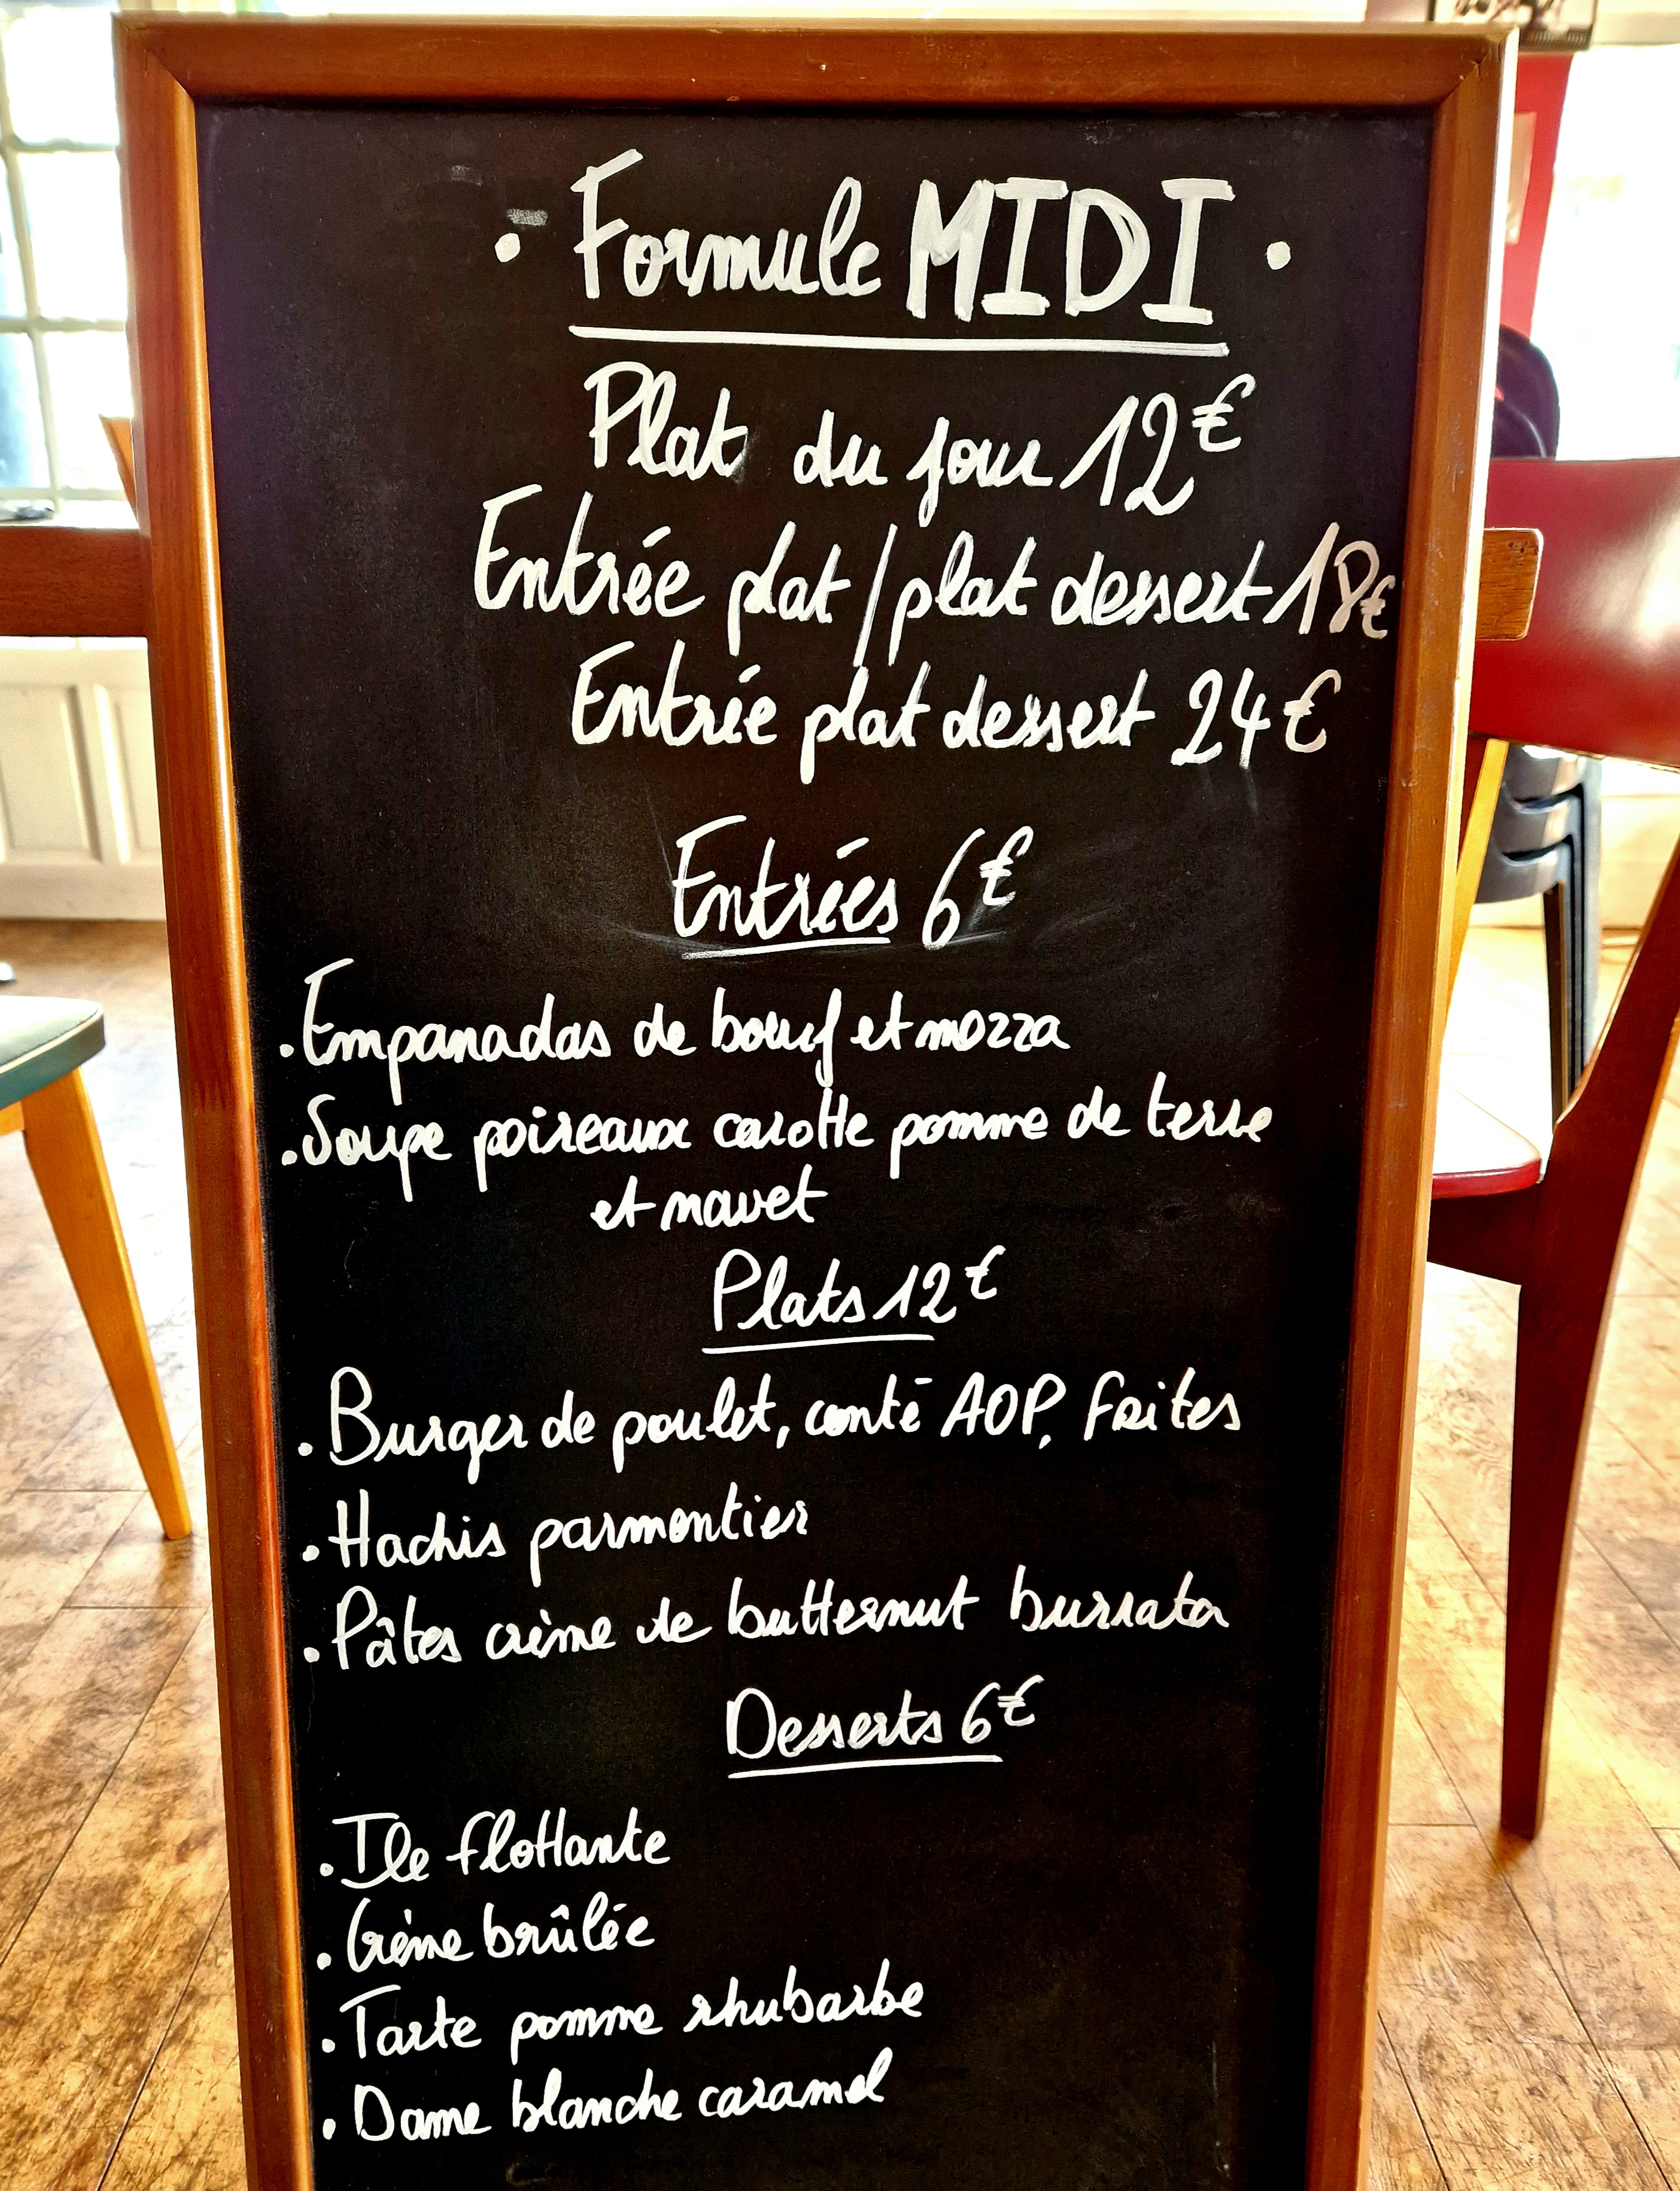 · Formule MIDI ·
Plat du jour 12€
Entrée plat/plat dessert 18€
Entrée plat dessert 24€
Entrées 6€
. Empanadas de boeuf et mozza
. Soupe poireaux carotte pomme de terre
et navet
Plats 12€
. Burger de poulet, comté AOP, frites
. Hachis parmentier
. Pâtes crème de butternut burrata
Desserts 6€
. Ile flottante
. Crème brûlée
. Tarte pomme rhubarbe
. Dame blanche caramel